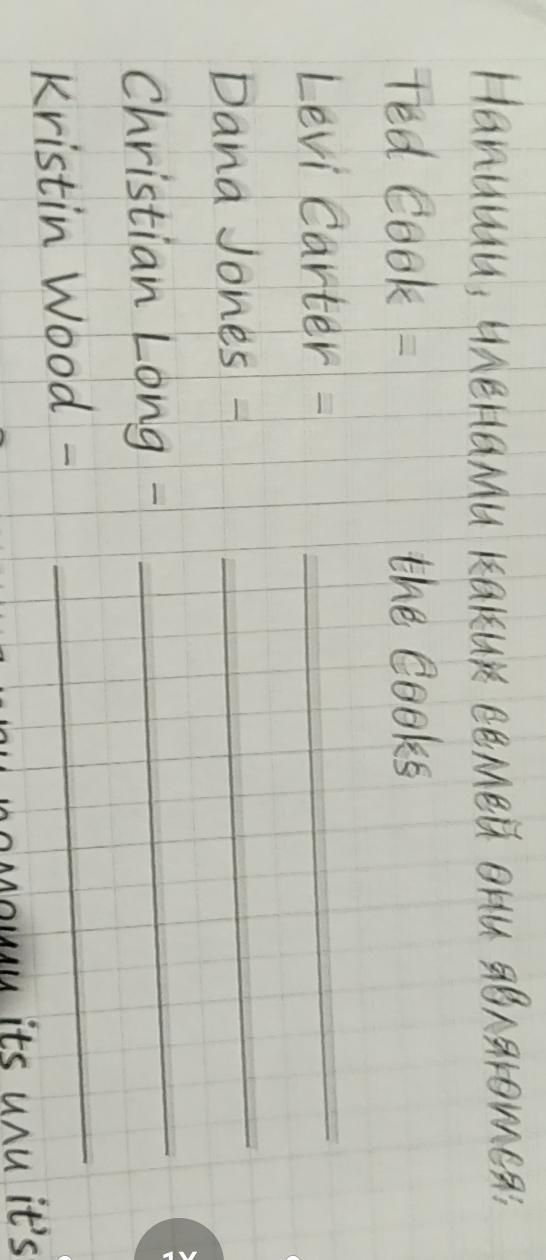 Напиши, членами каких семей они являются:
Ted Cook = the Cooks
Levi Carter =
Dana Jones =
Christian Long =
Kristin Wood =
помощи its или it's
1X